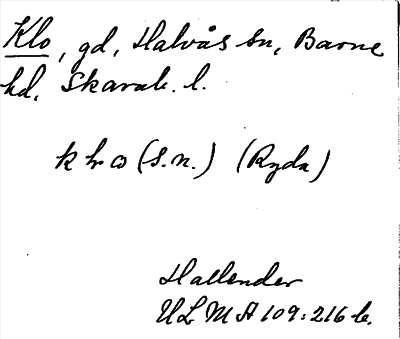 Klo, gd, Halvås sn, Barne
hd, Skarab. l.
k l ω (s.n.) (Ryda)
Hallender
ULMA 109:216 b.